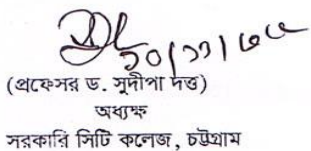 ২০/১১/২৫
(প্রফেসর ড. সুদীপা দত্ত)
অধ্যক্ষ
সরকারি সিটি কলেজ, চট্টগ্রাম